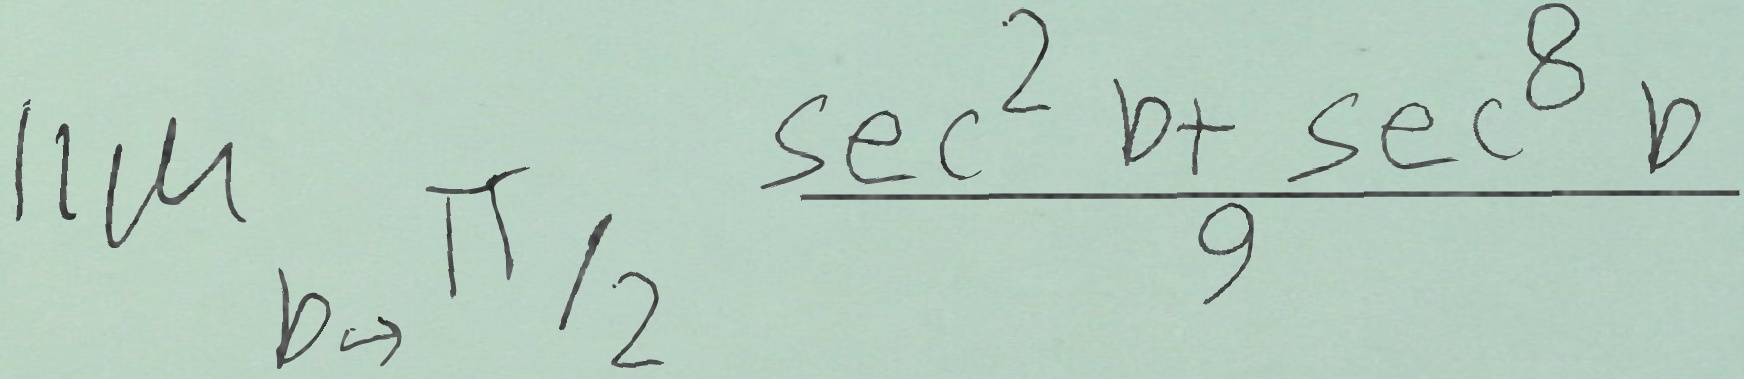 \lim_{b \to \pi/2} \frac{\sec^2 b + \sec^8 b}{9}